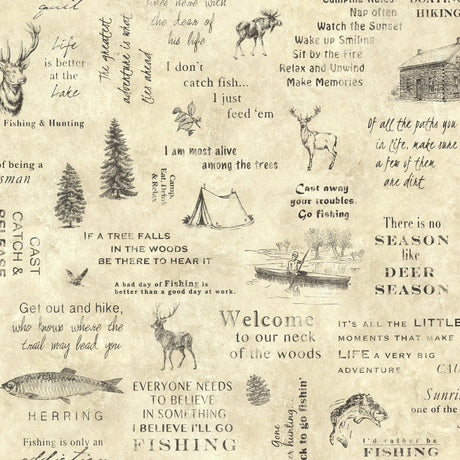 quilt
lives here with
the deer of
his life
The greatest
adventure is what
lies ahead
Life
is better
at the
Lake
Fishing & Hunting
I don't
catch fish...
I just
feed 'em
Nap often
Watch the Sunset
Wake up Smiling
Sit by the Fire
Relax and Unwind
Make Memories
HIKING
Of all the paths you
in life, make sure
a few of them
are dirt
of being a
sman
I am most alive
among the trees
Camp,
Eat, Drink
& Relax
Cast away
your troubles.
Go fishing
CAST
CATCH &
RELEASE
IF A TREE FALLS
IN THE WOODS
BE THERE TO HEAR IT
A bad day of Fishing is
better than a good day at work.
There is no
SEASON
like
DEER
SEASON
Get out and hike,
who knows where the
trail may lead you
Welcome
to our neck
of the woods
IT'S ALL THE LITTLE
MOMENTS THAT MAKE
LIFE A VERY BIG
ADVENTURE
HERRING
EVERYONE NEEDS
TO BELIEVE
IN SOMETHING
I BELIEVE I'LL GO
FISHING
Gone
hunting...
ck to go fishin'
Sunri
one of the
I'd rather be
FISHING
Fishing is only an
addiction